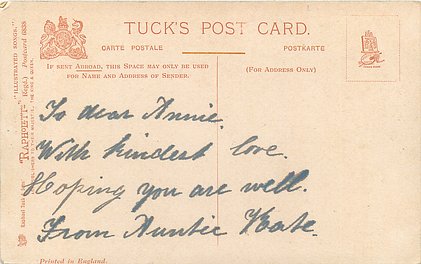 TUCK'S POST CARD.
CARTE POSTALE
POSTKARTE
IF SENT ABROAD, THIS SPACE MAY ONLY BE USED
FOR NAME AND ADDRESS OF SENDER.
(FOR ADDRESS ONLY)
"RAPHOLETTE" Regd.
"ILLUSTRATED SONGS."
Postcard 6838
To dear Annie.
With kindest love.
Hoping you are well.
From Auntie Kate.
Printed in England.